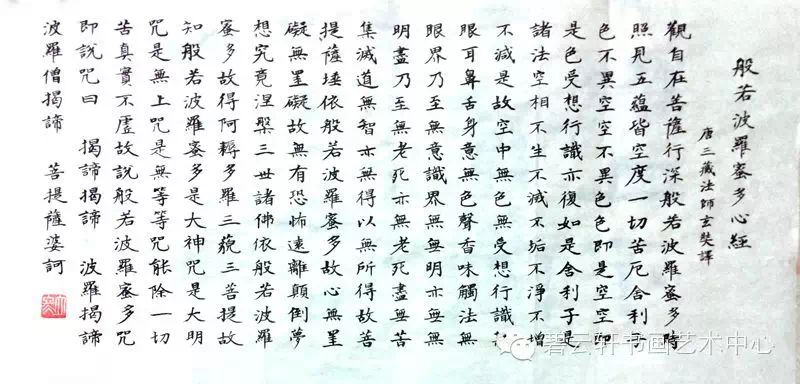 般若波羅蜜多心經
唐三藏法師玄奘譯
觀自在菩薩行深般若波羅蜜多時
照見五蘊皆空度一切苦厄舍利子
色不異空空不異色色即是空空即
是色受想行識亦復如是舍利子是
諸法空相不生不滅不垢不淨不增
不減是故空中無色無受想行識無
眼耳鼻舌身意無色聲香味觸法無
眼界乃至無意識界無無明亦無無
明盡乃至無老死亦無老死盡無苦
集滅道無智亦無得以無所得故菩
提薩埵依般若波羅蜜多故心無罣
礙無罣礙故無有恐怖遠離顛倒夢
想究竟涅槃三世諸佛依般若波羅
蜜多故得阿耨多羅三藐三菩提故
知般若波羅蜜多是大神咒是大明
咒是無上咒是無等等咒能除一切
苦真實不虛故說般若波羅蜜多咒
即說咒曰 揭諦揭諦 波羅揭諦
波羅僧揭諦 菩提薩婆訶
碧云轩书画艺术中心